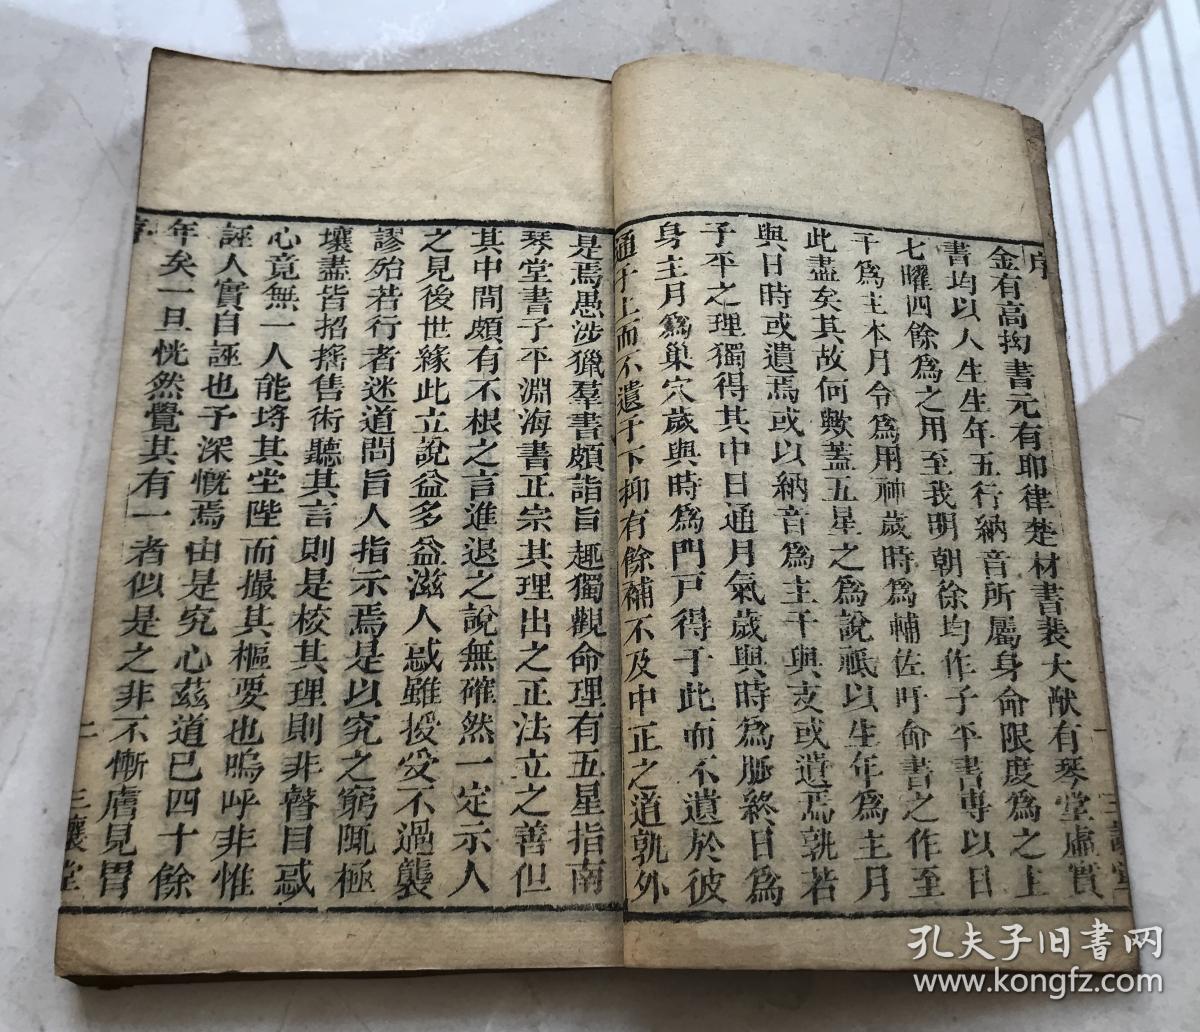 序
金有高抝書元有耶律楚材書裴大猷有琴堂虛實
書均以人生生年五行納音所屬身命限度為之主
七曜四餘為之用至我明朝徐均作子平書專以日
干為主本月令為用神歲時為輔佐吁命書之作至
此盡矣其故何歟蓋五星之為說祗以生年為主月
與日時或遺焉或以納音為主干與支或遺焉孰若
子平之理獨得其中日通月氣歲與時為脈終日為
身主月為巢穴歲與時為門戶得于此而不遺於彼
通于上而不遺于下抑有餘補不及中正之道孰外
是焉愚涉獵羣書頗詣旨趣獨觀命理有五星指南
琴堂書子平淵海書正宗其理出之正法立之善但
其中間頗有不根之言進退之說無確然一定示人
之見後世緣此立說益多益滋人惑雖授受不過襲
謬殆若行者迷道問旨人指示焉是以究之窮陬極
壤盡皆招搖售術聽其言則是核其理則非瞽目惑
心竟無一人能埓其堂陛而撮其樞要也嗚呼非惟
誣人實自誣也予深慨焉由是究心茲道已四十餘
年矣一旦恍然覺其有一者似是之非不慚膚見胃
二
三讓堂
孔夫子旧书网
www.kongfz.com